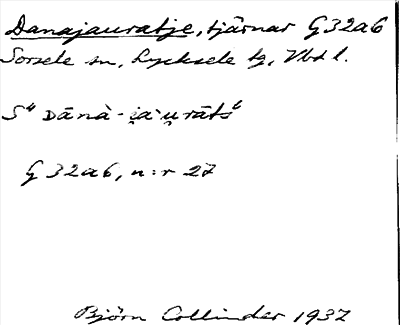 Danajauratje, tjärnar G32a6
Sorsele sn, Lycksele tg, Vbd l.
S⁴ Dānà-i̯a·u̯rātś
G 32a6, n:r 27
Björn Collinder 1937